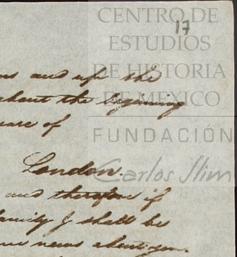 CENTRO DE
ESTUDIOS
DE HISTORIA
DE MÉXICO
FUNDACIÓN
Carlos Slim
17
and up the
about the beginning
care of
London.
and therefore if
family I shall be
news about you